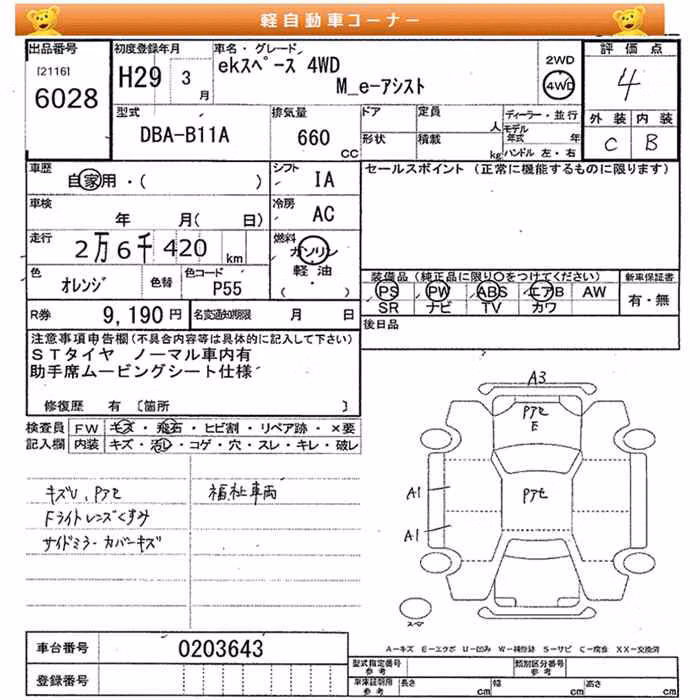 軽自動車コーナー
出品番号
[2116]
6028
初度登録年月
H29 3 月
車名・グレード
ekスペース 4WD
M_e-アシスト
2WD
4WD
評価点
4
外装 内装
C B
型式
DBA-B11A
排気量
660 CC
ドア
形状
定員 人
積載 kg
ディーラー・並行
モデル年式 年
ハンドル 左・右
車歴
自家用・( )
シフト
IA
セールスポイント (正常に機能するものに限ります)
車検
年 月( 日)
冷房
AC
走行
2万6千420 km
燃料
ガソリン
軽油
( ・ )
色
オレンジ
色替
色コード
P55
装備品 (純正品に限り○をつけてください)
PS PW ABS エアB AW
SR ナビ TV カワ
新車保証書
有・無
R券 9,190 円
名変通知期限 月 日
後日品
注意事項申告欄(不具合内容等は具体的に記入して下さい)
STタイヤ ノーマル車内有
助手席ムービングシート仕様
修復歴 有 〔箇所 〕
検査員 FW キズ・飛石・ヒビ割・リペア跡・×要
記入欄 内装 キズ・汚レ・コゲ・穴・スレ・キレ・破レ
キズU、Pアセ
Fライトレンズくすみ
サイドミラーカバーキズ
福祉車両
A3
Pアセ
E
Pアセ
A1
A1
スマ
A-キズ E-エクボ U-凹み W-補修跡 S-サビ C-腐食 XX-交換済
車台番号 0203643
登録番号
型式指定番号
参考
類別区分番号
参考
車庫証明用
参考
長さ cm
幅 cm
高さ cm